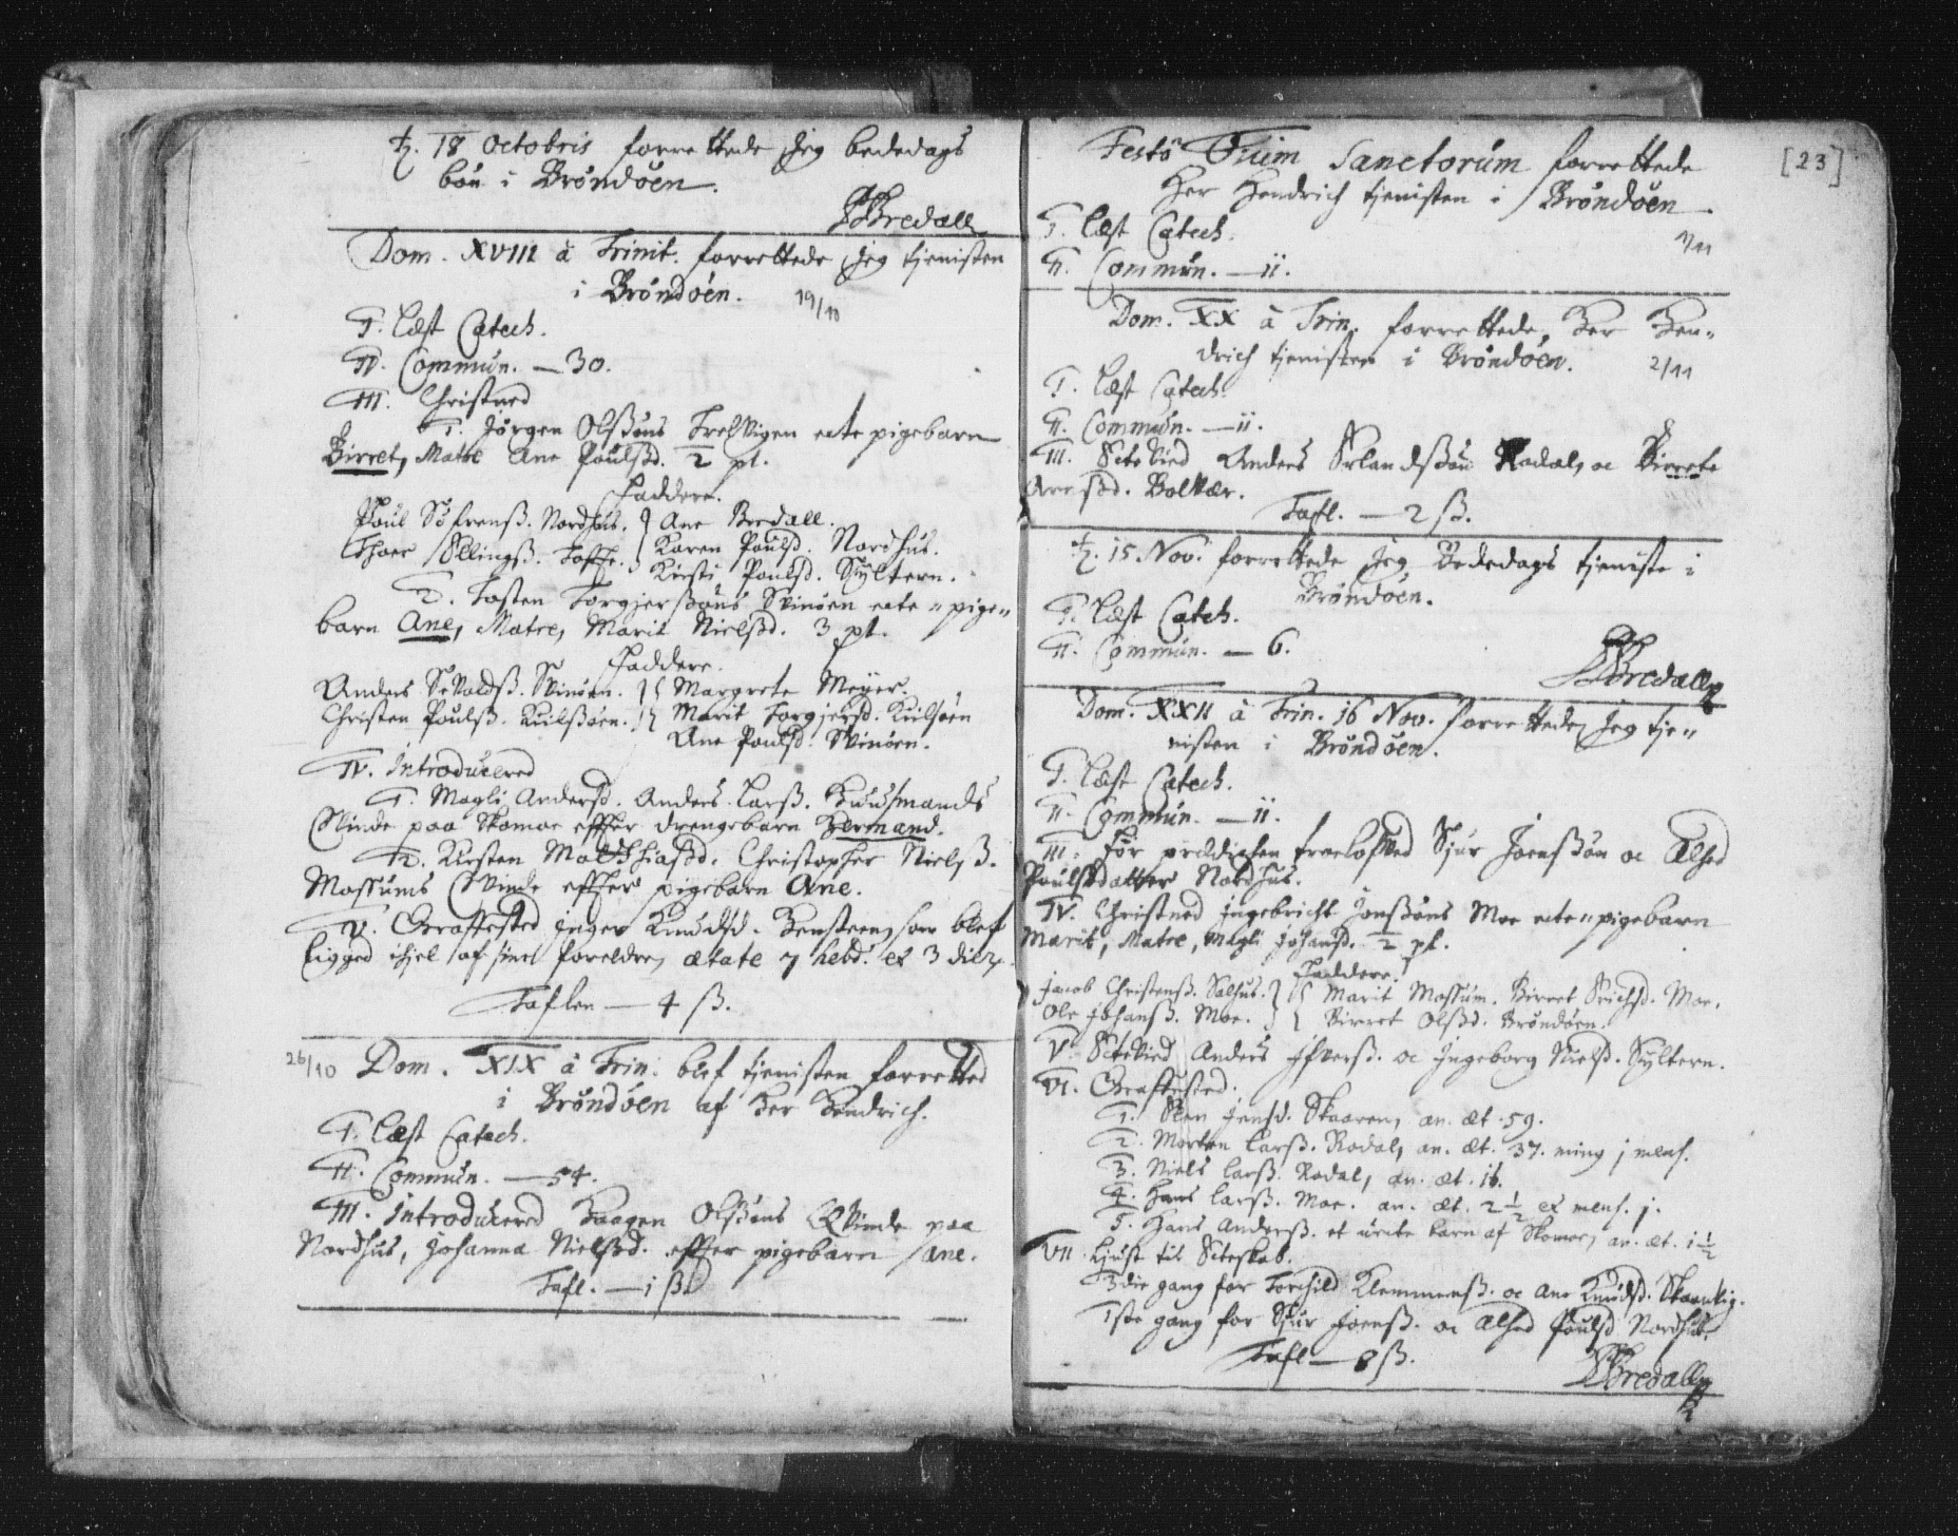 ђ. 18 Octobris forrettede Jeg bededags
bön i Bröndöen.
PBredall
Dom. XVIII à Trinit. forrettede Jeg tjenisten
i Bröndöen. 19/10
I. Læst Catech.
II. Commun. — 30.
III. Christned
I. Jörgen Olssöns Trelvigen ecte pigebarn
Birret, Matre Ane Poulsd. ½ pl.
Faddere.
Poul Söfrenss. Nordhus. } Ane Bredall.
Thoer Ellingss. Toffte. } Karen Poulsd. Nordhus.
Kirsti Poulsd. Syltern.
2. Tosten Torgjerssöns Svinöen ecte pige-
barn Ane, Matre, Marit Nielsd. 3 pl.
Faddere.
Anders Sevaldss. Svinöen. } { Margrete Meyer.
Christen Poulss. Kuilssöen. } { Marit Torgjersd. Kuilsöen
Ane Poulsd. Svinöen.
IV. Introducered
I. Magli Andersd. Anders Larss. Huusmands
Qvinde paa Skomoe effter drengebarn Hermand.
2. Kirsten Malthiasd. Christopher Nielss.
Mossums Qvinde effter pigebarn Ane.
V. Graffested Inger Knudsd. Hensteen, som blef
ligged ihjel af sine foreldre, ætate 7 hebd. et 3 dier.
Taflen — 4 ss.
26/10 Dom. XIX à Trin. blef tjenisten forretted
i Bröndöen af Her Hendrich.
I. Læst Catech.
II. Commun. — 54.
III. Introducered Haagen Olssöns Qvinde paa
Nordhus, Johanna Nielsd. effter pigebarn Ane.
Tafl. — 1 ss.
[23]
Festo Omnium Sanctorum forrettede
Her Hendrich tjenisten i Bröndöen.
I. Læst Catech. 1/11
II. Commun. — ii.
Dom. XX à Trin. forrettede Her Hen-
drich tjenisten i Bröndöen. 2/11
I. Læst Catech.
II. Commun. — ii.
III. Ecte Vied Anders Erlandssön Rodal, oc Birrete
Arnesd. Bolvær.
Tafl. — 2 ss.
ђ. 15 Nov. forrettede Jeg Bededags tjeniste i
Bröndöen.
I. Læst Catch.
II. Commun. — 6.
PBredall
Dom. XXII à Trin. 16 Nov. forrettede Jeg tje-
nisten i Bröndöen.
I. Læst Catech.
II. Commun. — ii.
III. För prædichen troelofved Sjur Joenssön oc Alhed
Poulsdatter Nordhus.
IV. Christned Ingebricht Jonssöns Moe ecte pigebarn
Marit, Matre, Magli Johansd. ½ pl.
Faddere.
Jacob Christenss. Salhus. } { Marit Mossum. Birret Erichsd. Moe.
Ole Johanss. Moe. } { Birret Olssd. Bröndöen.
V. EcteVied Anders Ifverss. oc Ingeborg Nielsd. Syltern.
VI. Graffested.
1. Elen Jensd. Skaaren, an. æt. 59.
2. Morten Larss. Rodal, an. æt. 37. ming j mens.
3. Niels Larss. Rodal, an. æt. 16.
4. Hans Larss. Moe. an. æt. 2½ et mens. j.
5. Hans Anderss. et uecte barn af Skomoe, an. æt. 1½
VII. Liust til Ecteskab.
3die gang for Torchild Klemmenss. oc Ane Knudsd. Skaanvig.
1ste gang for Sjur Joenss. oc Alhed Poulsd Nordhus.
Tafl — 8 ss.
PBredall